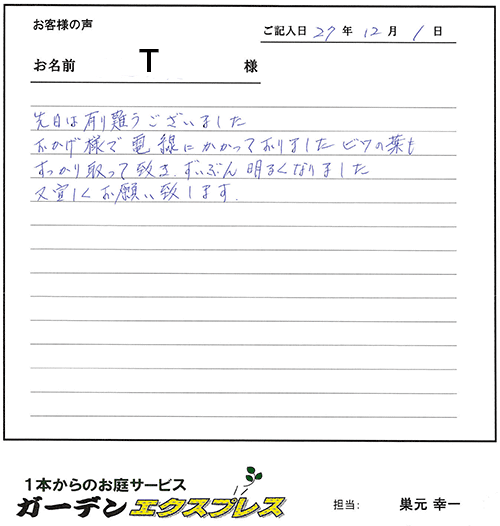 お客様の声
ご記入日 27 年 12 月 1 日
お名前 T 様
先日は有り難うございました
おかげ様で電線にかかっておりましたビワの葉も
すっかり取って致き.ずいぶん明るくなりました
又宜しくお願い致します.
1本からのお庭サービス
ガーデンエクスプレス
担当: 巣元 幸一